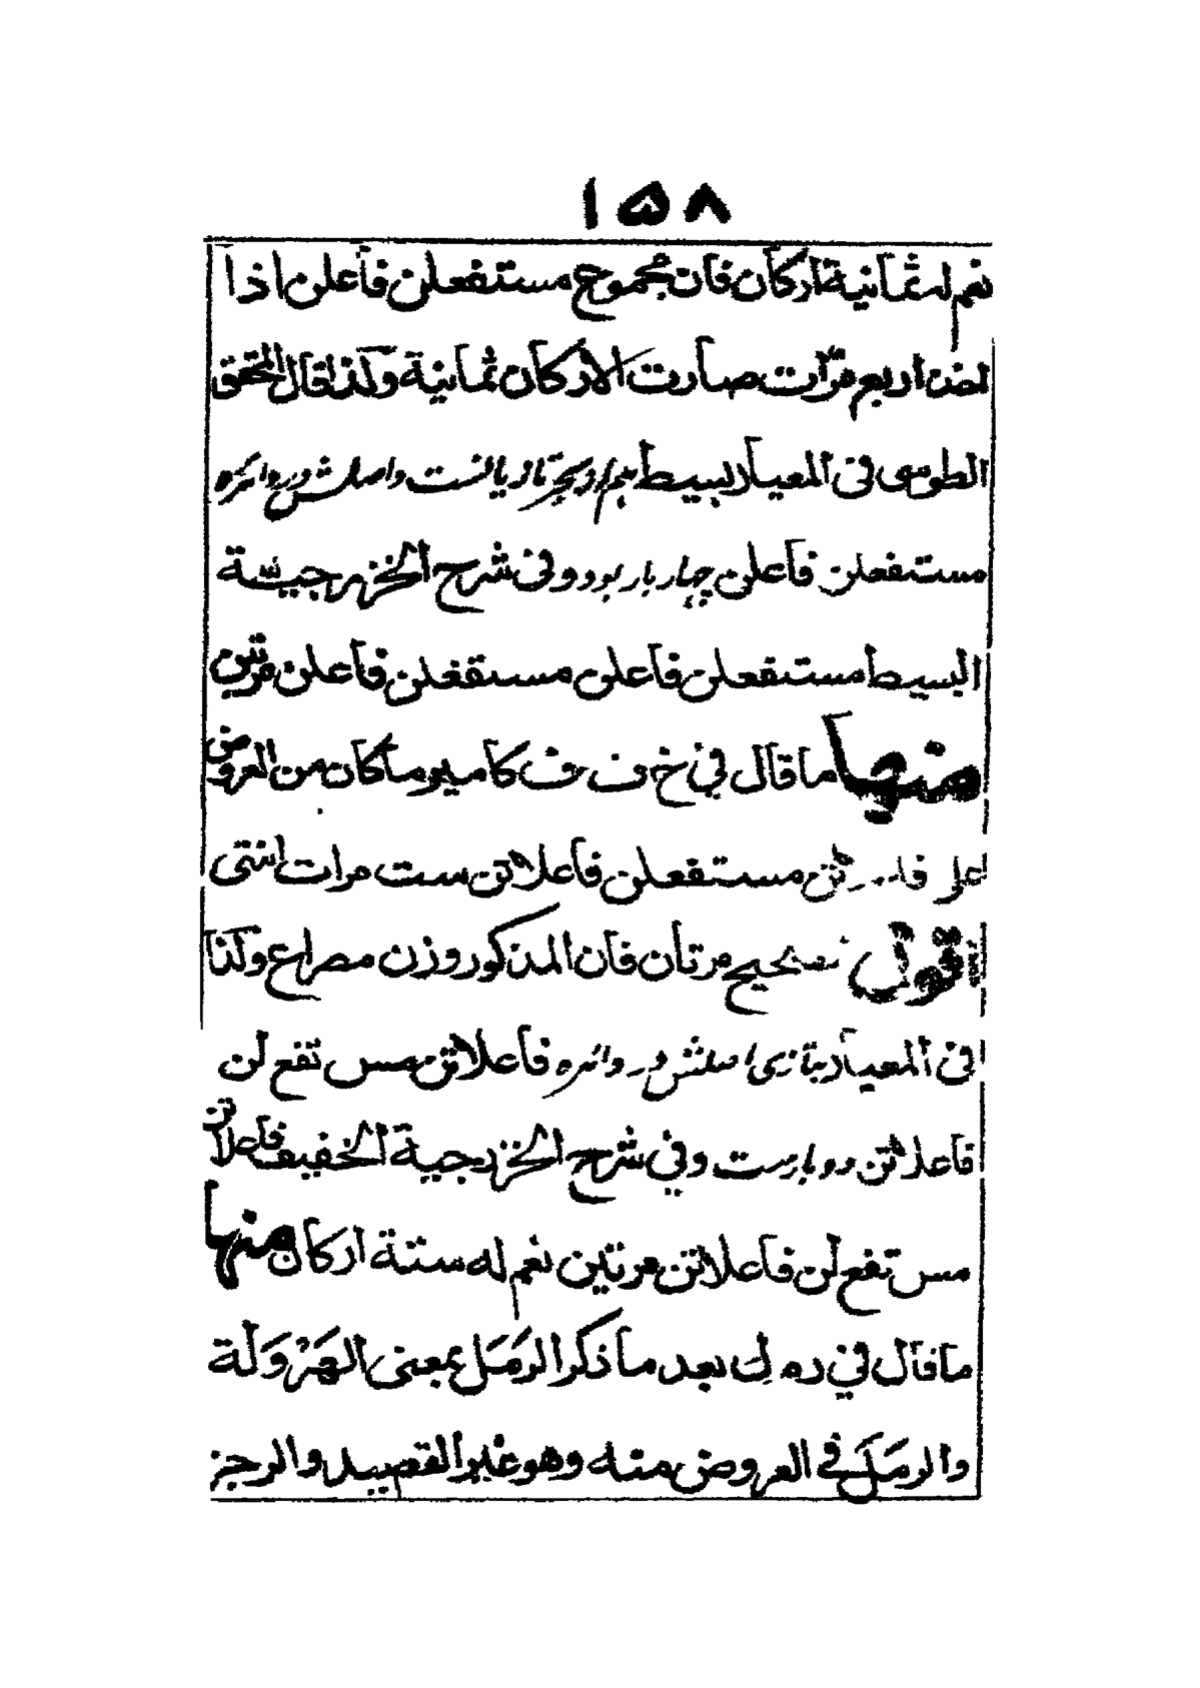 ١٥٨
نعم له ثمانية اركان فان مجموع مستفعلن فاعلن اذا
اخذ اربع مرّات صارت الاركان ثمانية ولذا قال المحقق
الطوسى فى المعيار البسيط هم از بحر تازيانست واصلش در دائره
مستفعلن فاعلن چهار بار بود وفى شرح الخزرجيّة
البسيط مستفعلن فاعلن مستفعلن فاعلن مرتين
منها ما قال في خ ف ف كامير وما كان من العروض
على فاعلاتن مستفعلن فاعلاتن ست مرات انتهى
اقول صحيح مرتان فان المذكور وزن مصراع وكذا
فى المعيار بتازى اصلش در دائره فاعلاتن مس تفع لن
فاعلاتن دو بارست وفي شرح الخزرجية الخفيف فاعلاتن
مس تفع لن فاعلاتن مرتين نعم له ستة اركان منها
ما قال في رم ل بعد ما ذكر الرَمَل بمعنى الهَرْوَلة
والرمَل في العروض منه وهو غير القصيد والرجز